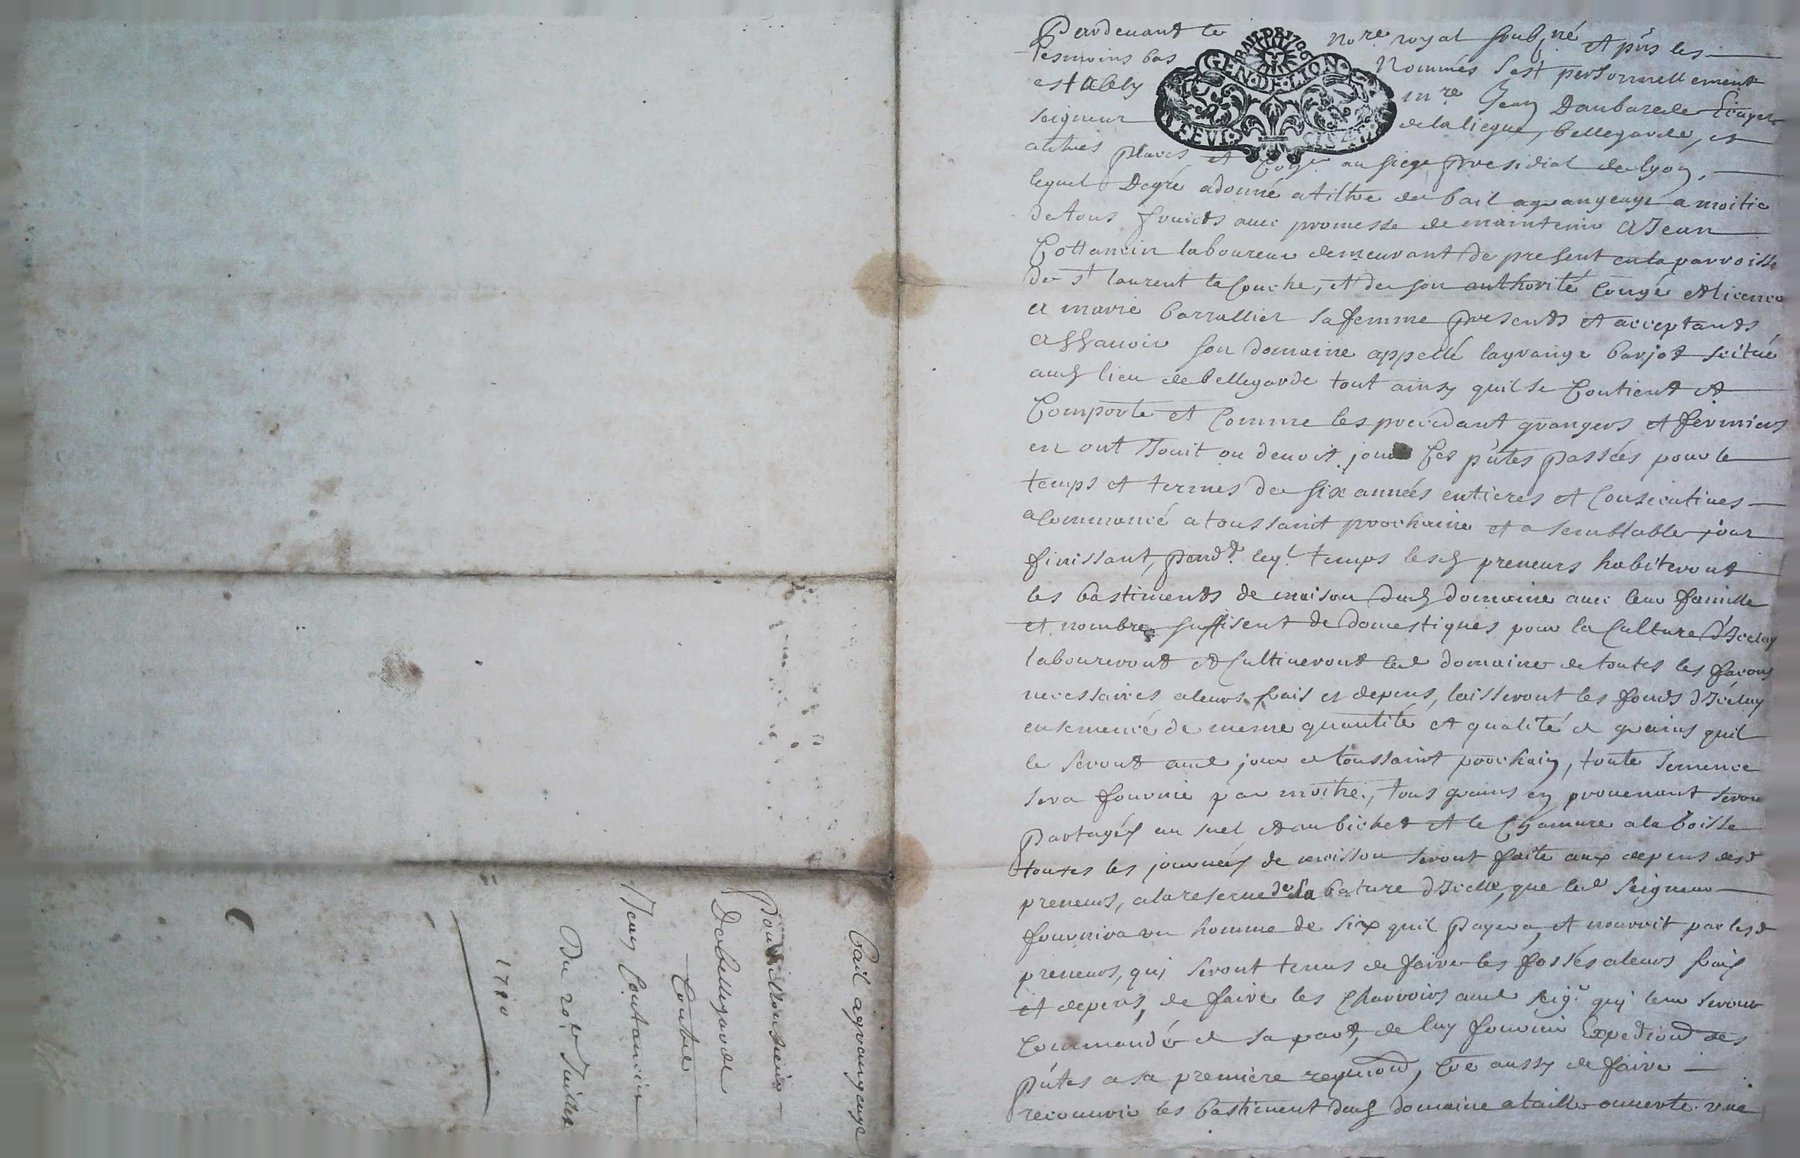 Pardevant le no.re royal soub.né et pñs les
tesmoins bas Nommés s'est personnellement
estably m.re Jean Daubarede Ecuyer
seigneur de la liegue, bellegarde, et
autres places et Con.er au siege presidial de lyon,
lequel Degré a donné a tiltre de bail a grangeage a moitié
de tous fruicts avec promesse de maintenir A Jean
Cottancin laboureur demeurant de present en la parroisse
de S.t laurent la Couche, et de son authorité congé et licence
et marie barrallier sa femme presents et acceptants
assavoir son domaine appellé lagrange barjot scitué
aud lieu de bellegarde tout ainsy quil se Contient et
Comporte et Comme les precedant grangers et fermiers
en ont Jouit ou devoit jouir Les pñtes passées pour le
temps et termes de six années entieres et Consecutives
a Commencé a toussaint prochaine et a semblable jour
finissant, pend.t leq.l temps lesd preneurs habiteront
les bastiments de maison dud domaine avec leur famille
et nombre suffisent de domestiques pour la Culture d'Iceluy
laboureront et Cultiveront led domaine de toutes les facons
necessaires a leurs frais et depens, laisseront les fonds d'Iceluy
ensemencé de meme quantité et qualité de grains quil
le seront aud jour de toussaint prochain, toute semence
sera fournie par moitié, tous grains en provenant seront
partagés au suel et au bichet et le Chanvre a la boisse
toutes les journées de moisson seront faite aux depens desd
preneurs, a la reserve de la bature d'Icelle, que led seigneur
fournira un homme de six quil payera, et nourrit par lesd
preneurs, qui seront tenus de faire les fossés a leurs frais
et depens, de faire les charrois aud seig.r qui leur seront
Commandés de sa part, de luy fournir Expedition des
pñtes a sa premiere requision, Co͞e aussy de faire
recouvrir les bastiment dud domaine a taille ouverte une
bail a grangeage
Pour Monsieur
De bellegarde
Contre
Jean Coutancin
Du 20.e Juillet
1710
GEN.DE.LION